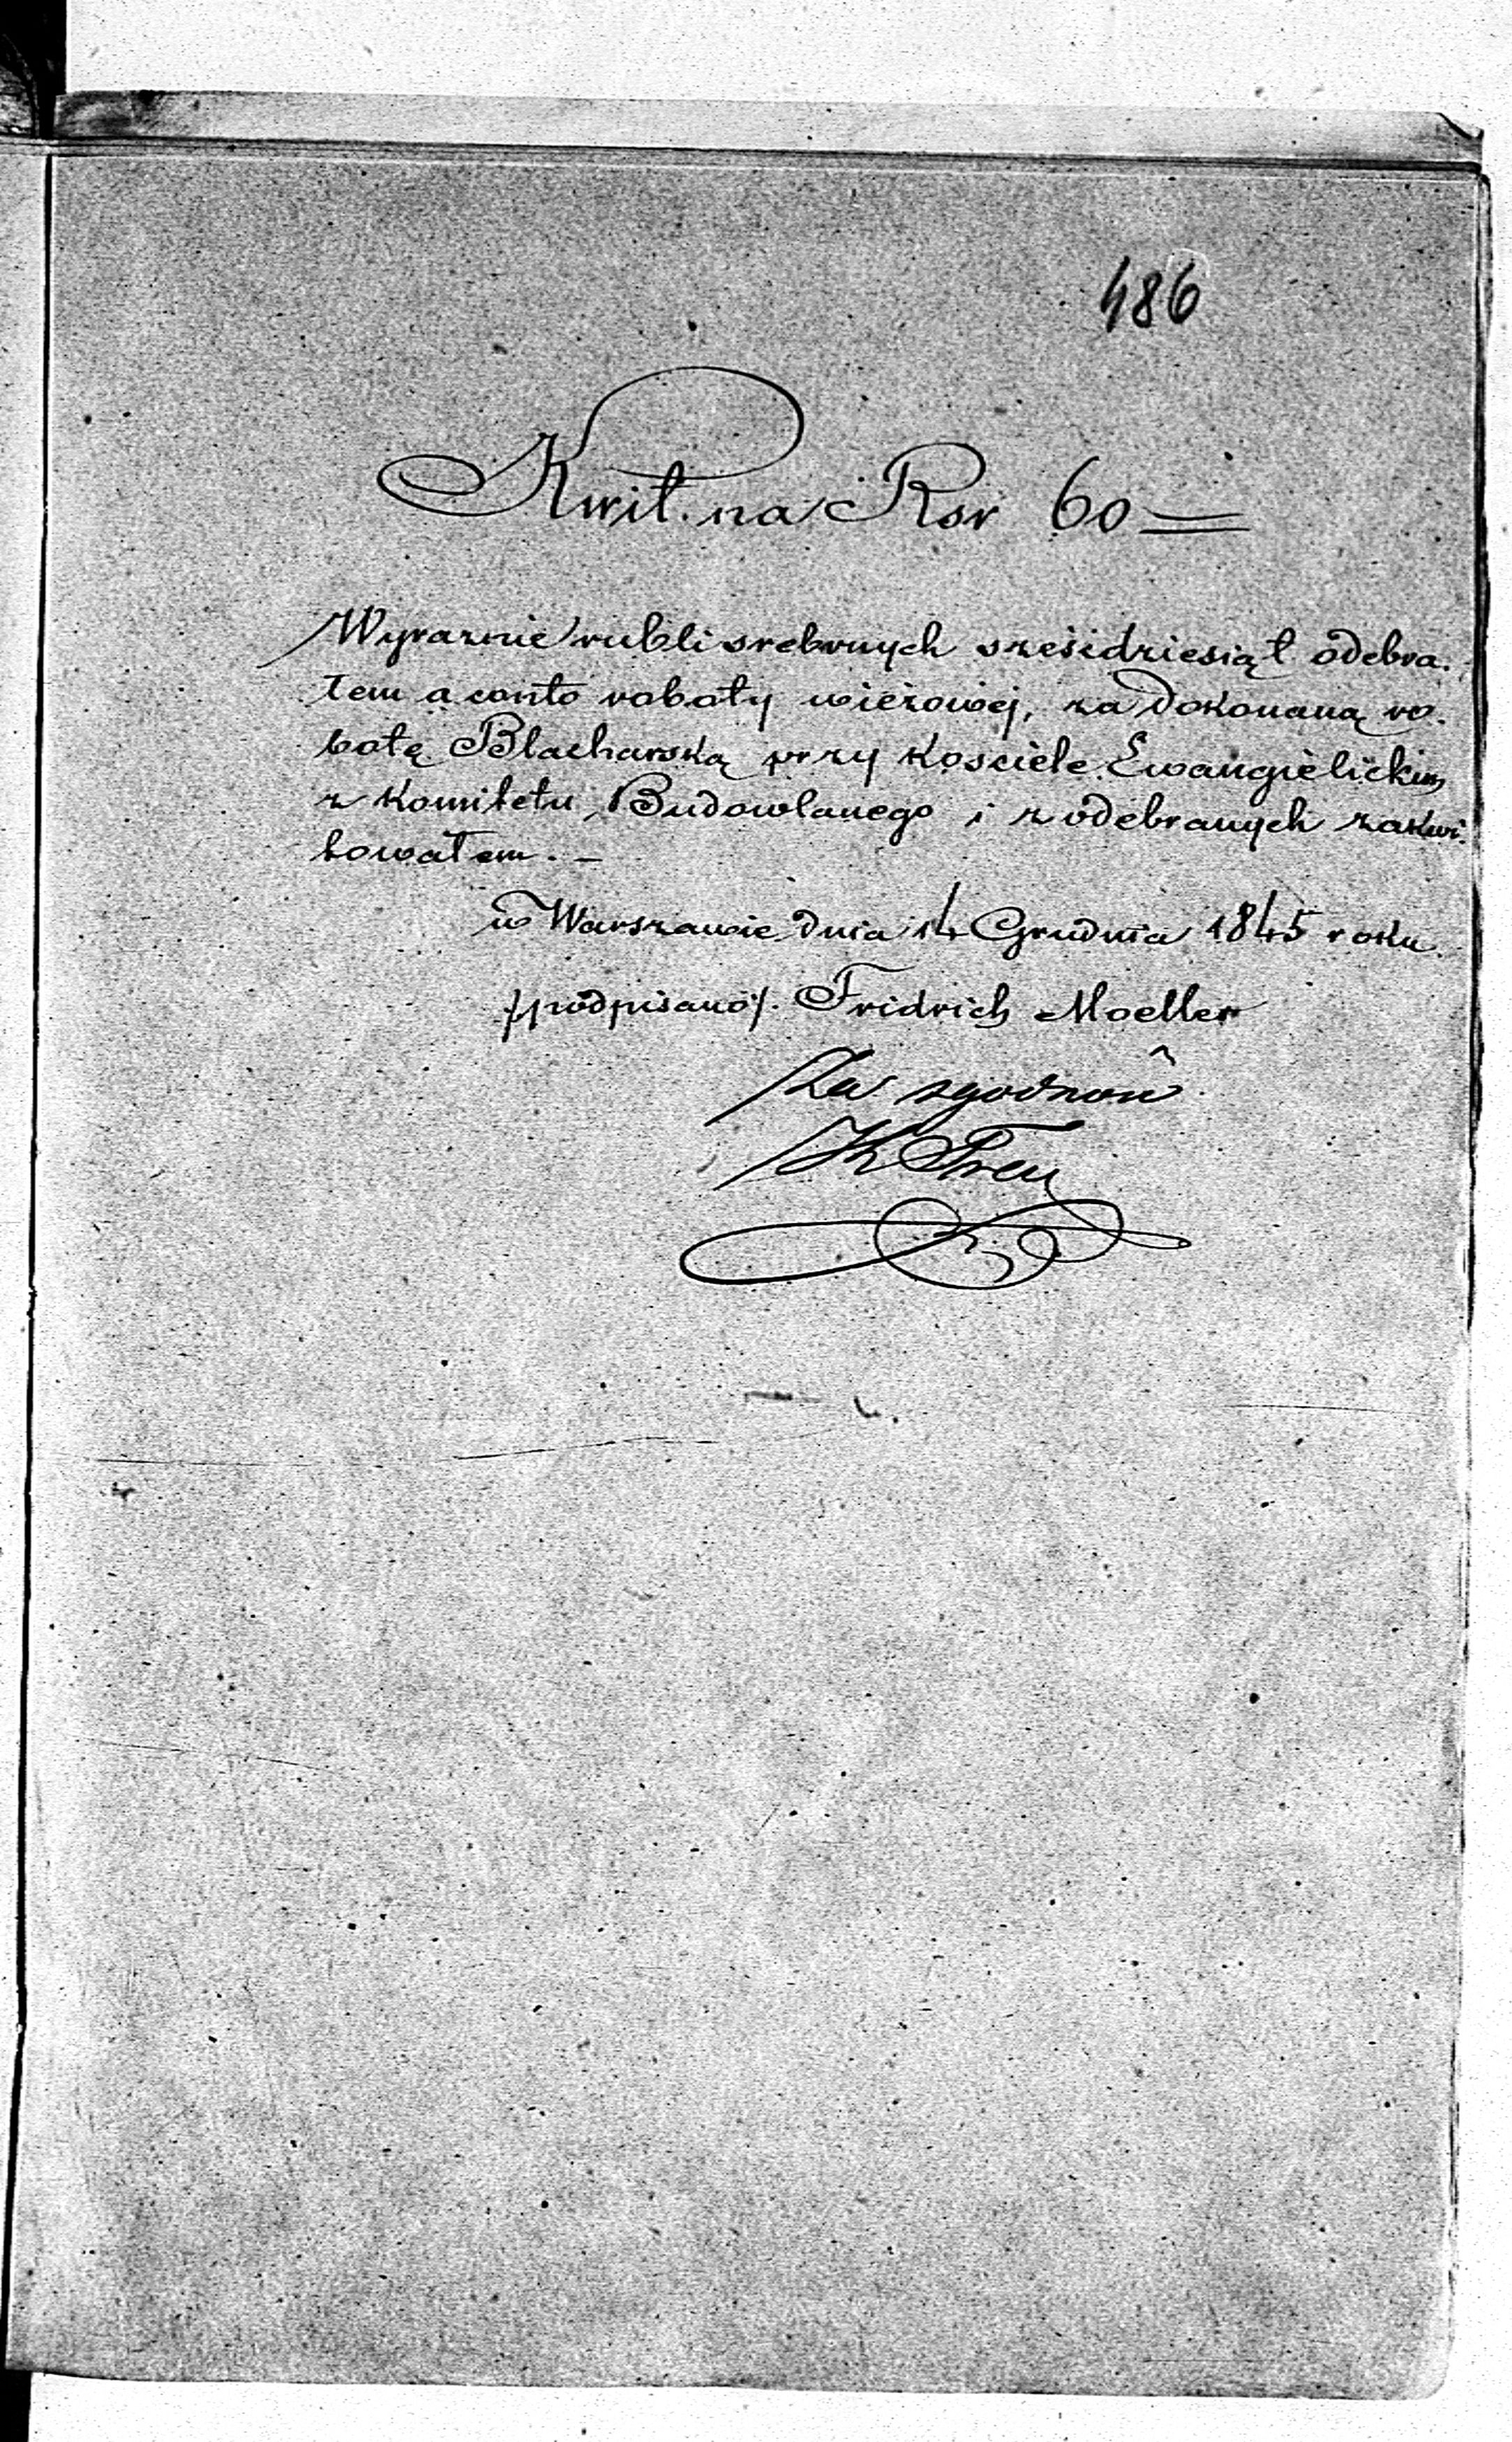 486
Kwit na Rsr 60 =
Wyraznie rubli srebrnych sześćdziesiąt odebra-
łem a conto roboty wieżowej, za dokonaną ro-
botę Blacharską przy Kosciele Ewangielickim
z Komitetu Budowlanego i z odebranych zakwi-
towałem. —
w Warszawie dnia 14 Grudnia 1845 roku
/podpisano/. Fridrich Moeller
Za zgodność